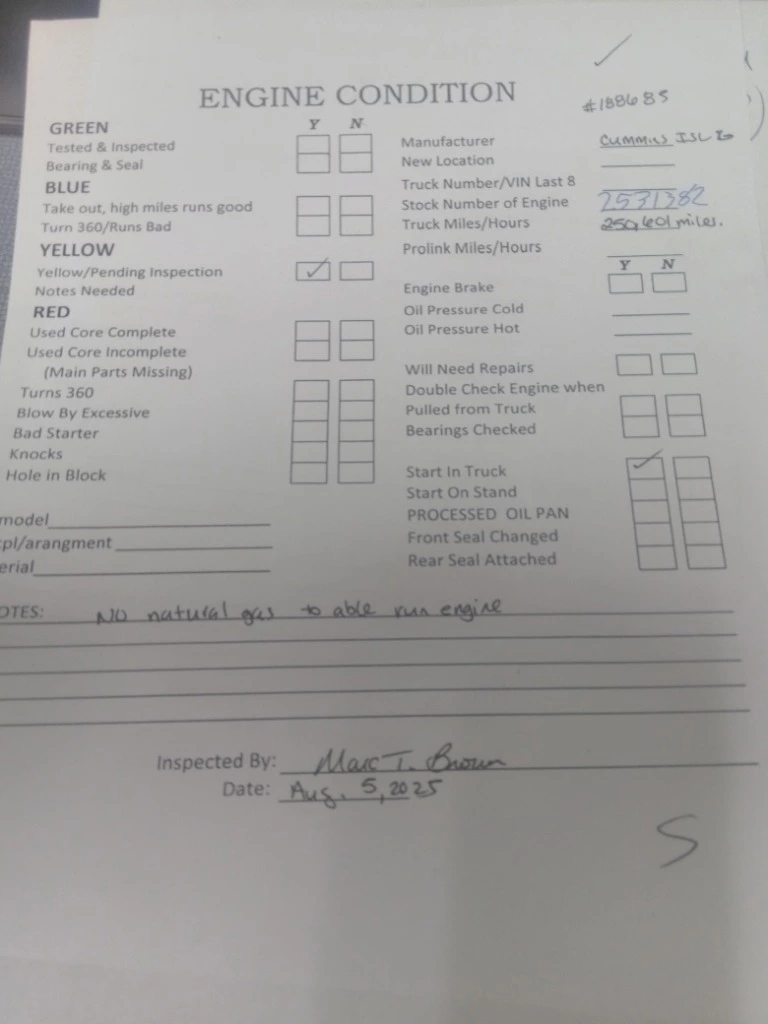 ENGINE CONDITION
#188685
Y N
GREEN
Tested & Inspected
Bearing & Seal
BLUE
Take out, high miles runs good
Turn 360/Runs Bad
YELLOW
Yellow/Pending Inspection
Notes Needed
RED
Used Core Complete
Used Core Incomplete
(Main Parts Missing)
Turns 360
Blow By Excessive
Bad Starter
Knocks
Hole in Block
model
cpl/arangment
erial
Manufacturer Cummins ISL G
New Location
Truck Number/VIN Last 8
Stock Number of Engine 2531382
Truck Miles/Hours 250,601 miles.
Prolink Miles/Hours
Y N
Engine Brake
Oil Pressure Cold
Oil Pressure Hot
Will Need Repairs
Double Check Engine when
Pulled from Truck
Bearings Checked
Start In Truck
Start On Stand
PROCESSED OIL PAN
Front Seal Changed
Rear Seal Attached
OTES: No natural gas to able run engine
Inspected By: Marc T. Brown
Date: Aug. 5, 2025
S